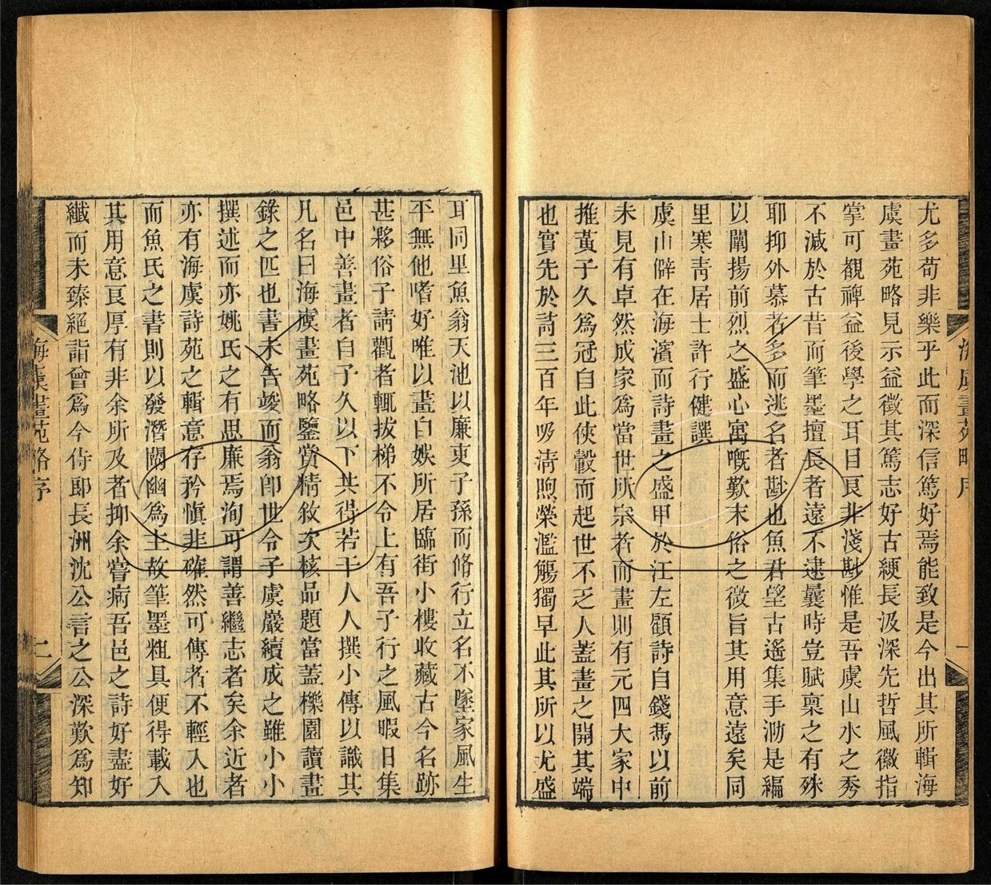 尤多苟非樂乎此而深信篤好焉能致是今出其所輯海
虞畫苑略見示益徵其篤志好古綆長汲深先哲風徽指
掌可觀裨益後學之耳目良非淺尠惟是吾虞山水之秀
不減於古昔而筆墨擅長者遠不逮曩時豈賦稟之有殊
耶抑外慕者多而逃名者尠也魚君望古遙集手泐是編
以闡揚前烈之盛心寓嘅歎末俗之微旨其用意遠矣同
里寒青居士許行健譔
虞山僻在海濱而詩畫之盛甲於江左顧詩自錢馮以前
未見有卓然成家為當世所宗者而畫則有元四大家中
推黃子久為冠自此俠轂而起世不乏人蓋畫之開其端
也實先於詩三百年吸清煦榮濫觴獨早此其所以尤盛
海虞畫苑略序
一
耳同里魚翁天池以廉吏子孫而脩行立名不墜家風生
平無他嗜好唯以畫自娛所居臨街小樓收藏古今名跡
甚夥俗子請觀者輒拔梯不令上有吾子行之風暇日集
邑中善畫者自子久以下共得若干人人撰小傳以識其
凡名曰海虞畫苑略鑒賞精敘次核品題當蓋櫟園讀畫
錄之匹也書未告竣而翁即世令子虞巖續成之雖小小
撰述而亦姚氏之有思廉焉洵可謂善繼志者矣余近者
亦有海虞詩苑之輯意存矜慎非確然可傳者不輕入也
而魚氏之書則以發潛闡幽為主故筆墨粗具便得載入
其用意良厚有非余所及者抑余嘗病吾邑之詩好盡好
纖而未臻絕詣曾為今侍郎長洲沈公言之公深歎為知
海虞畫苑略序
二